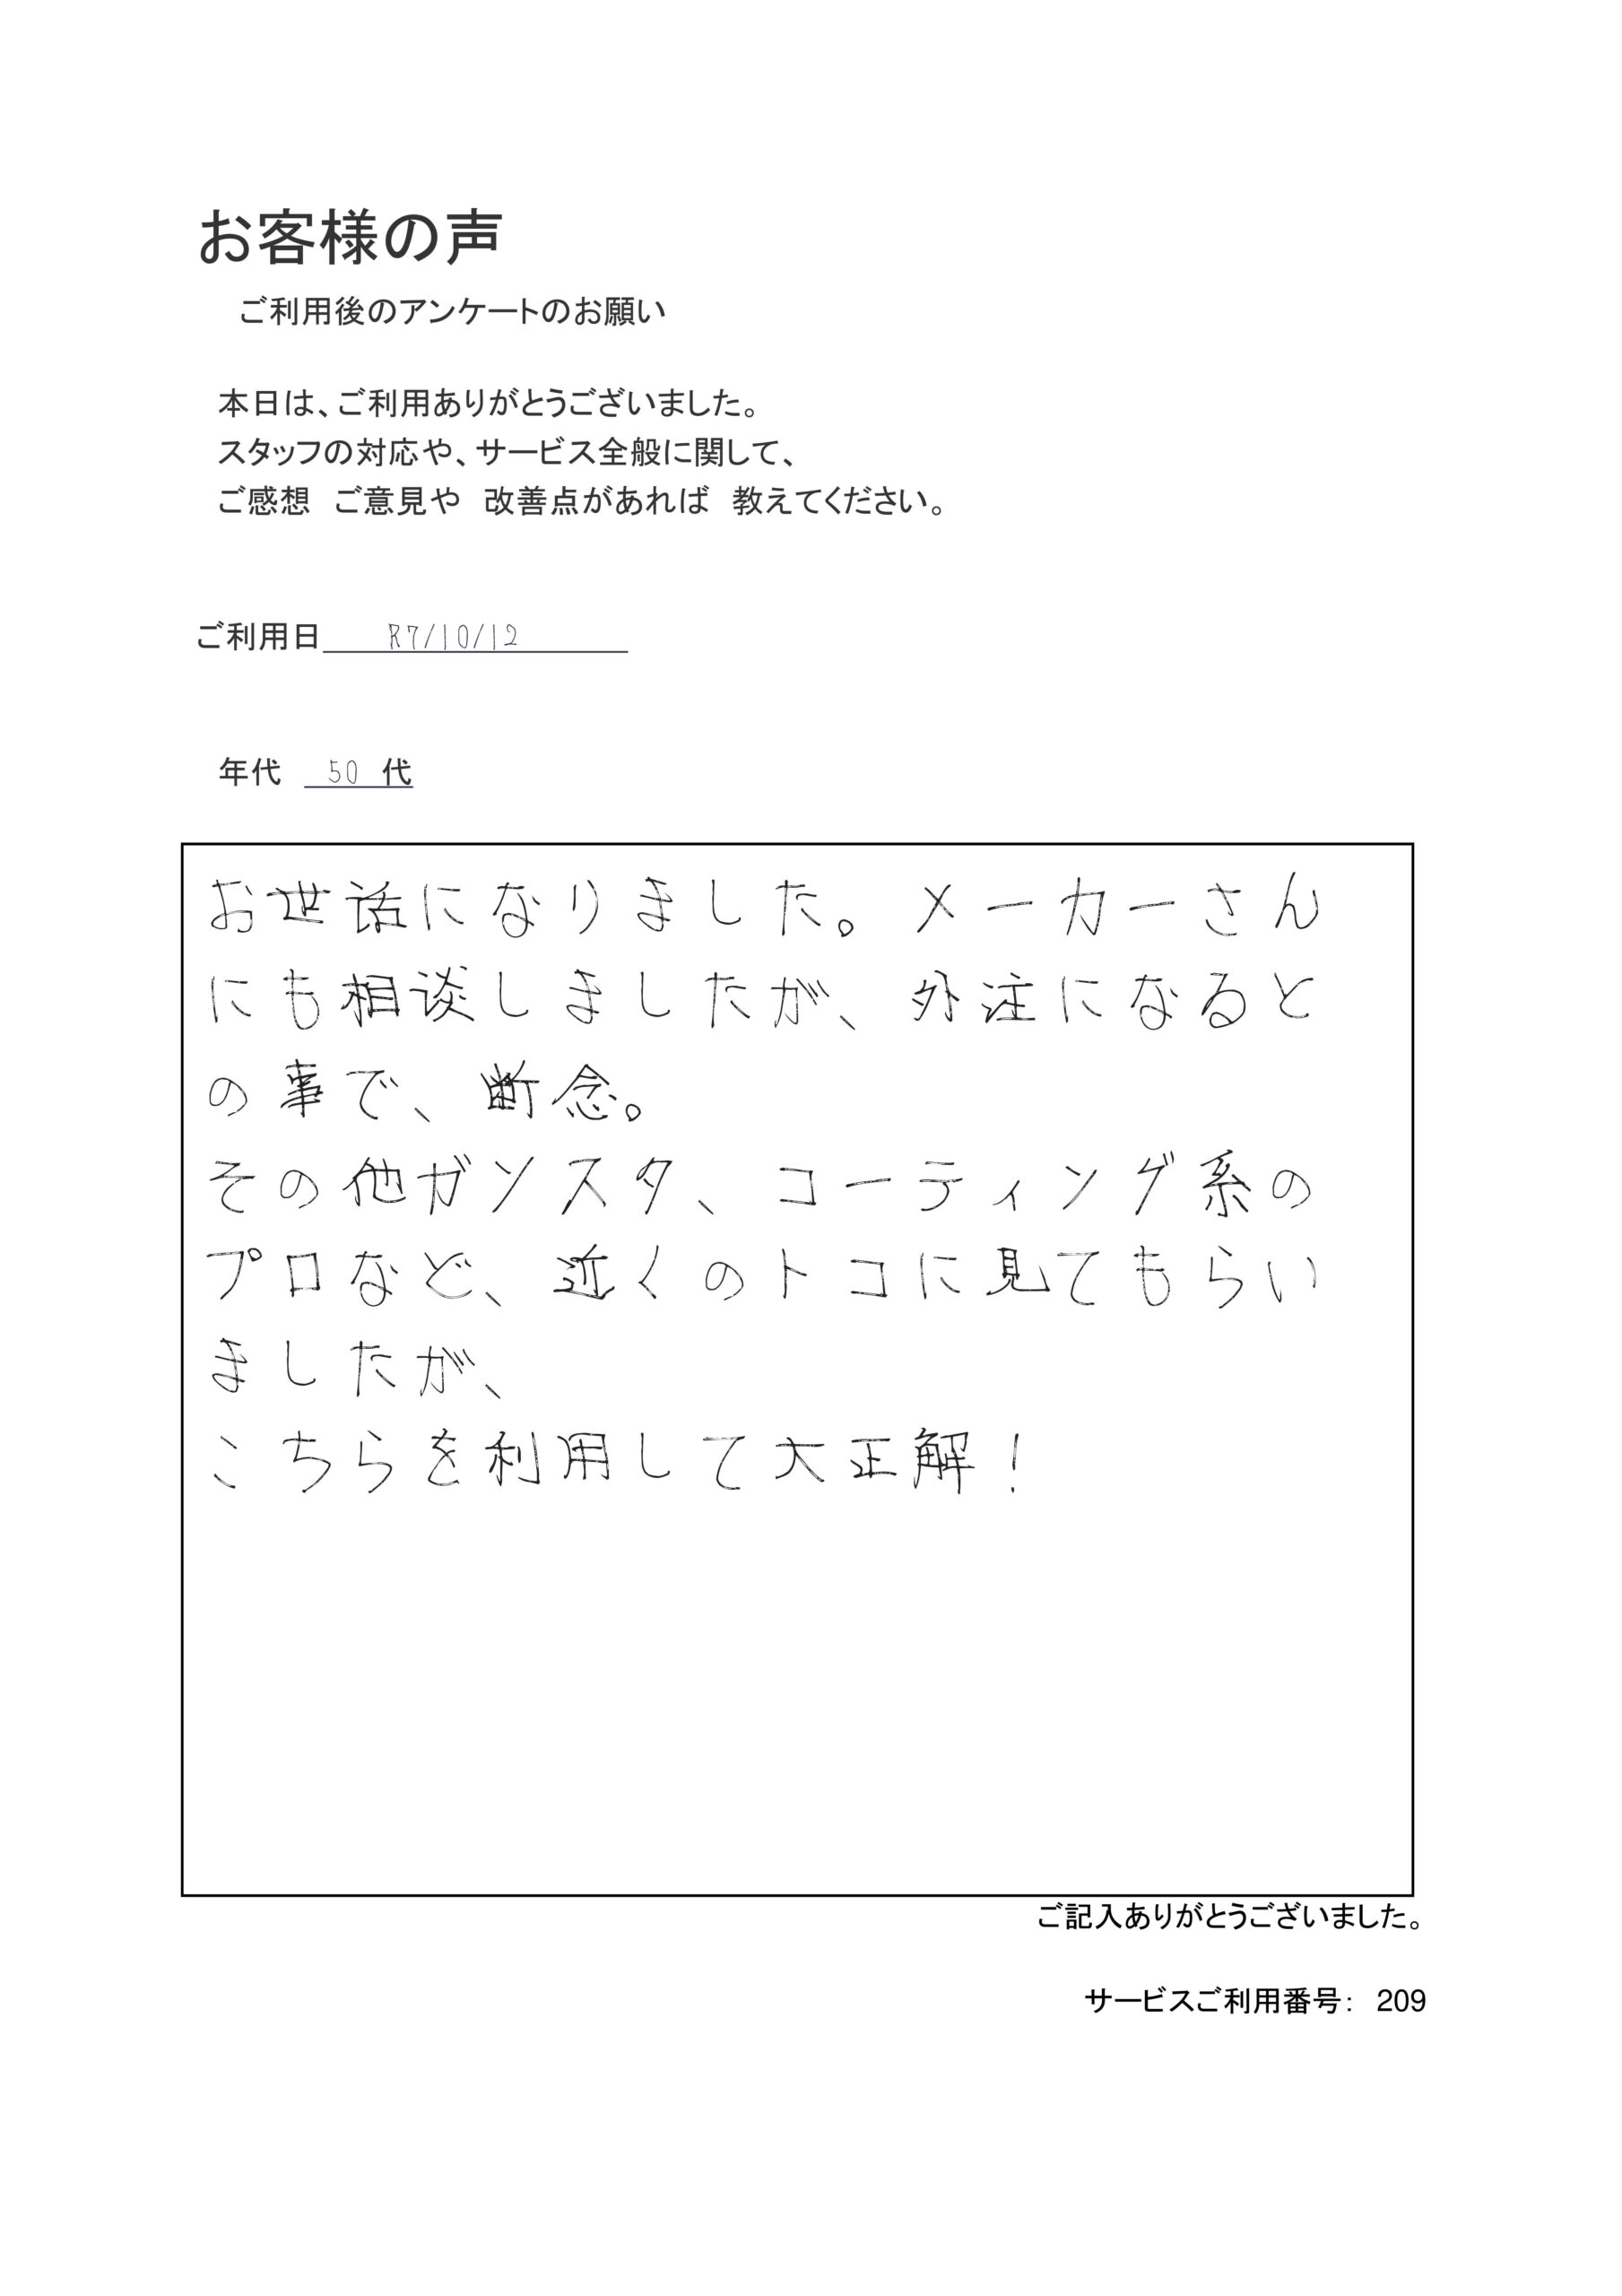 お客様の声
ご利用後のアンケートのお願い
本日は、ご利用ありがとうございました。
スタッフの対応や、サービス全般に関して、
ご感想　ご意見や　改善点があれば　教えてください。
ご利用日 R7/10/12
年代 50 代
お世話になりました。メーカーさん
にも相談しましたが、外注になると
の事で、断念。
その他ガソスタ、コーティング系の
プロなど、近くのトコに見てもらい
ましたが、
こちらを利用して大正解！
ご記入ありがとうございました。
サービスご利用番号：　209